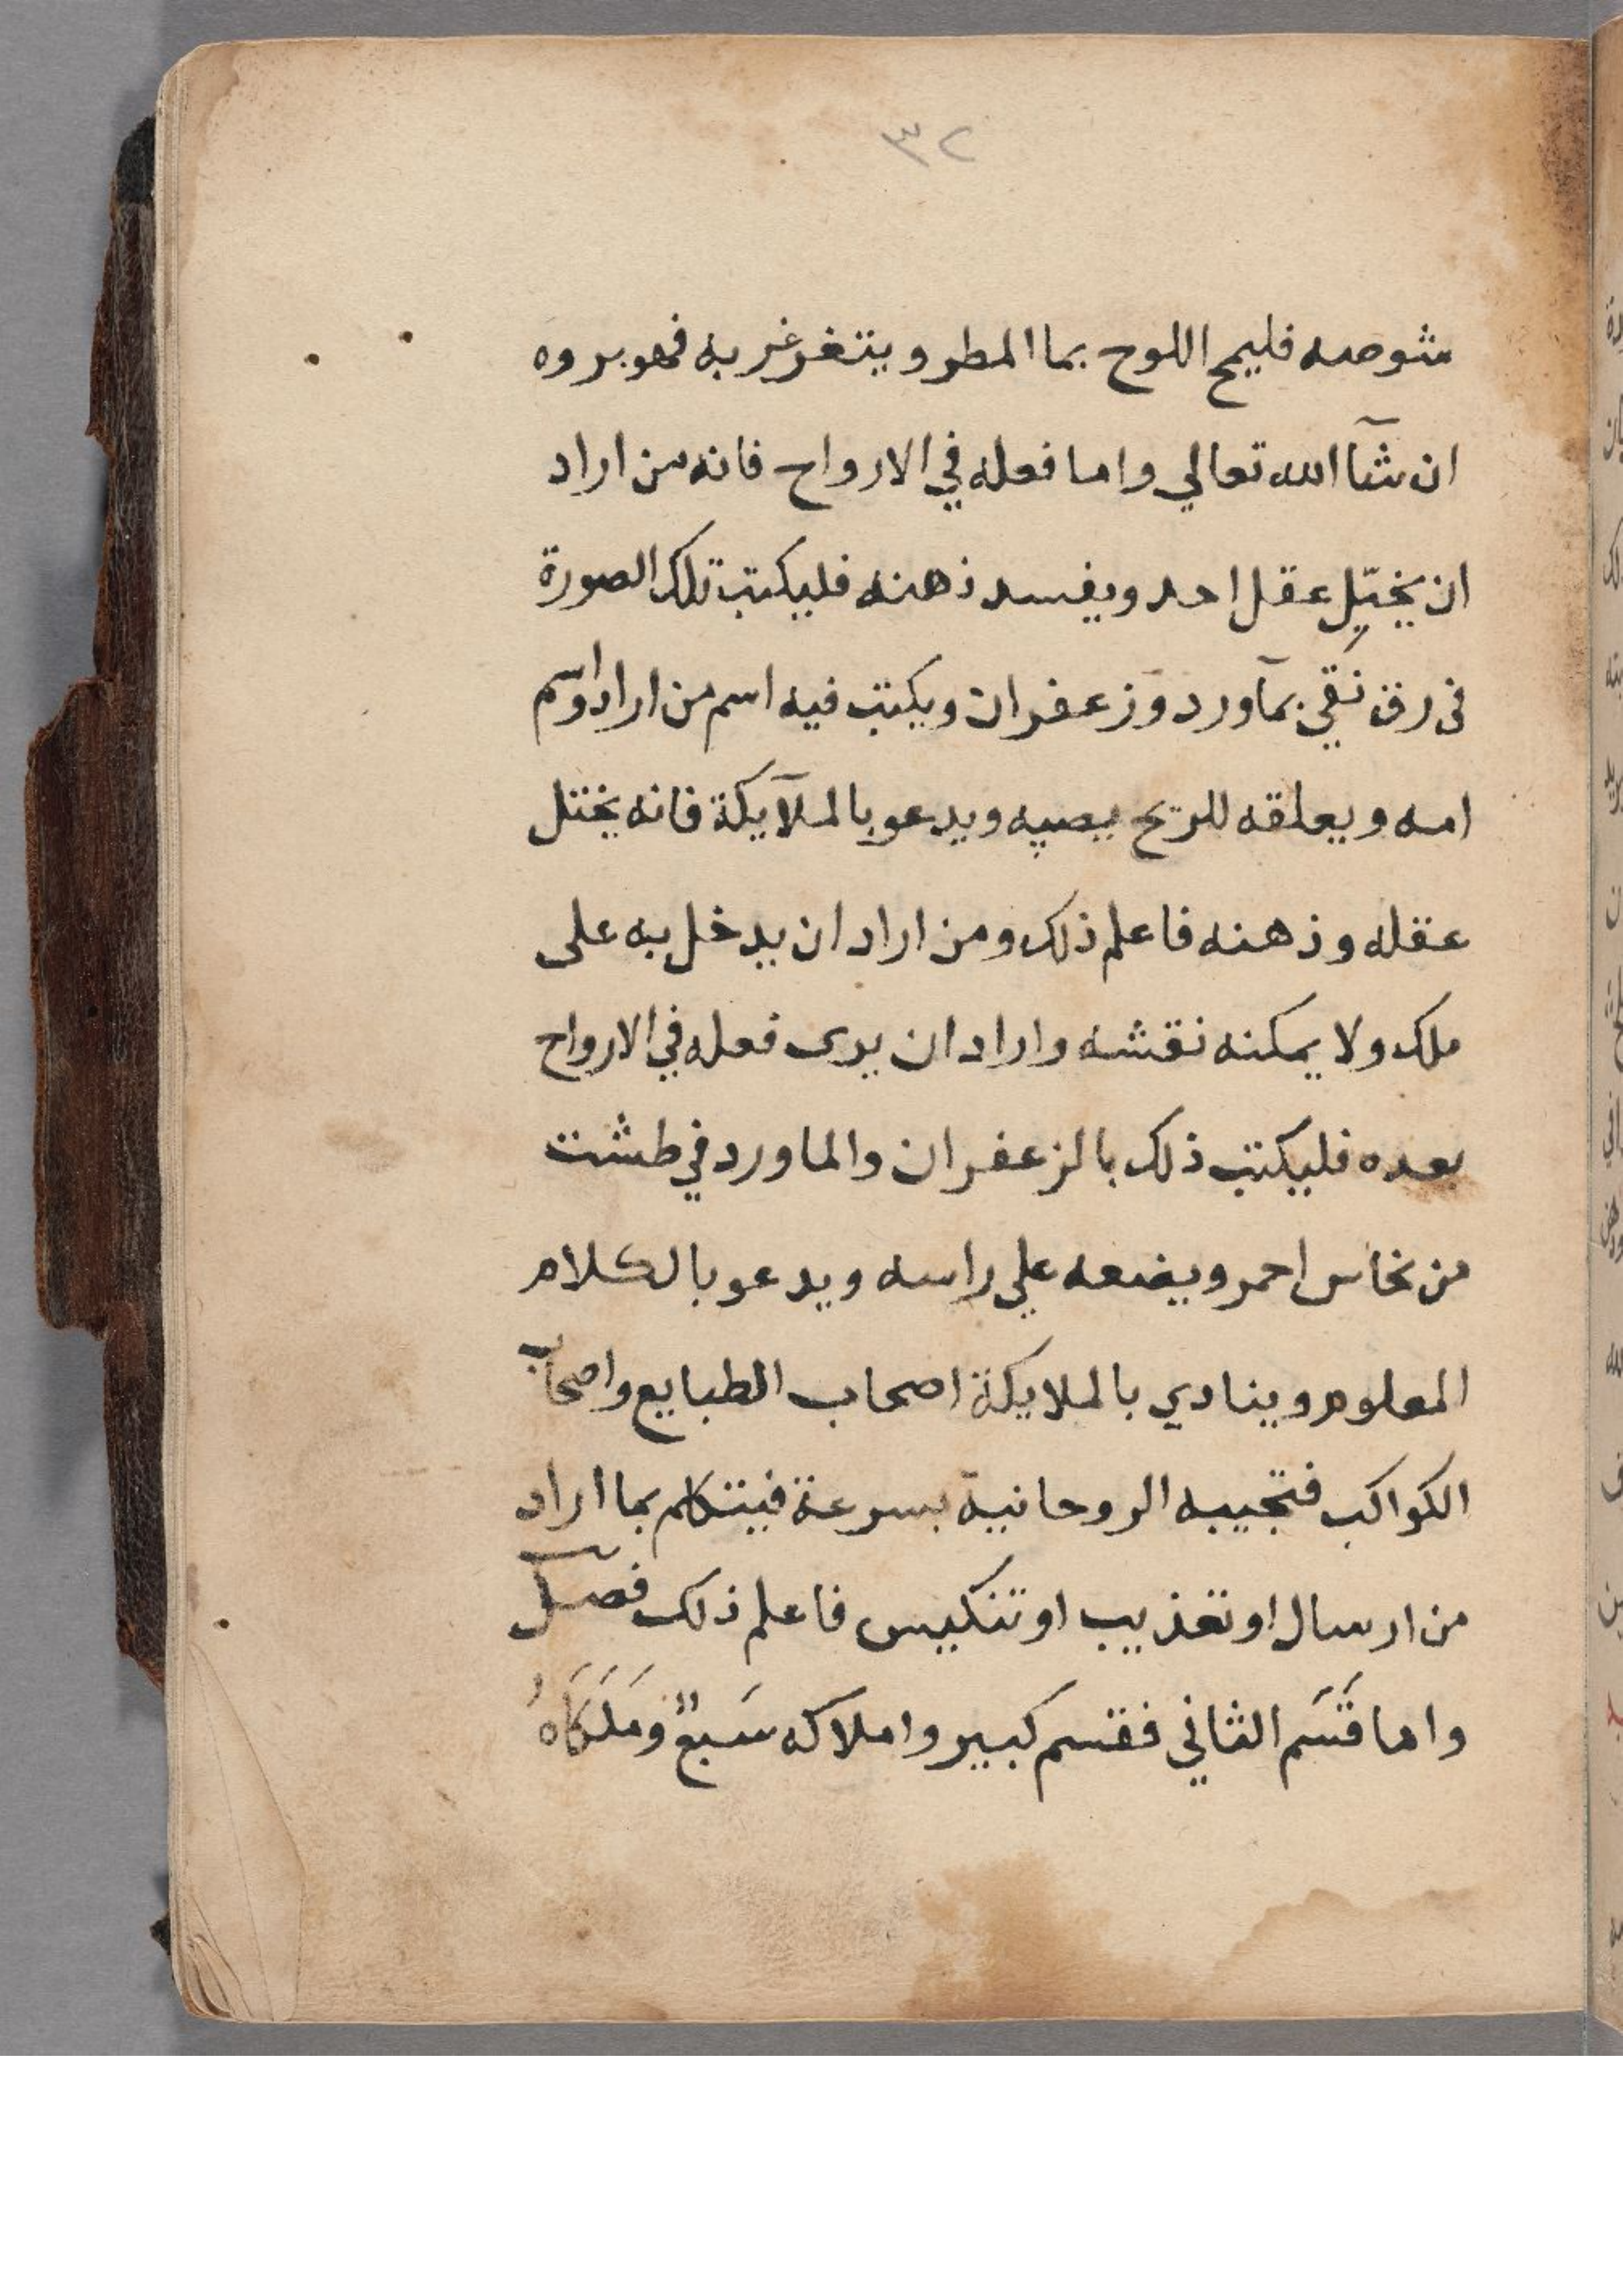 ٣٢
شوصه فليمح اللوح بما المطر ويتغرغر به فهو بروه
ان شآ الله تعالي واما فعله في الارواح فانه من اراد
ان يختل عقل احد ويفسد ذهنه فليكتب تلك الصورة
في رق نقي بمآورد وزعفران ويكتب فيه اسم من اراد واسم
امه ويعلقه للريح يصيبه ويدعو بالملآيكة فانه يختل
عقله وذهنه فاعلم ذلك ومن اراد ان يدخل به على
ملك ولا يمكنه نقشه واراد ان يرى فعله في الارواح
بعده فليكتب ذلك بالزعفران والماورد في طشت
من نحاس احمر ويضعه علي راسه ويدعو بالكلام
المعلوم وينادي بالملايكة اصحاب الطبايع واصحاب
الكواكب فتجيبه الروحانية بسرعة فيتكلم بما اراد
من ارسال او تعذيب او تنكيس فاعلم ذلك فصل
واما قَسَم الثاني فقسم كبير واملاكه سَبعٌ ومَلَكَاهُ